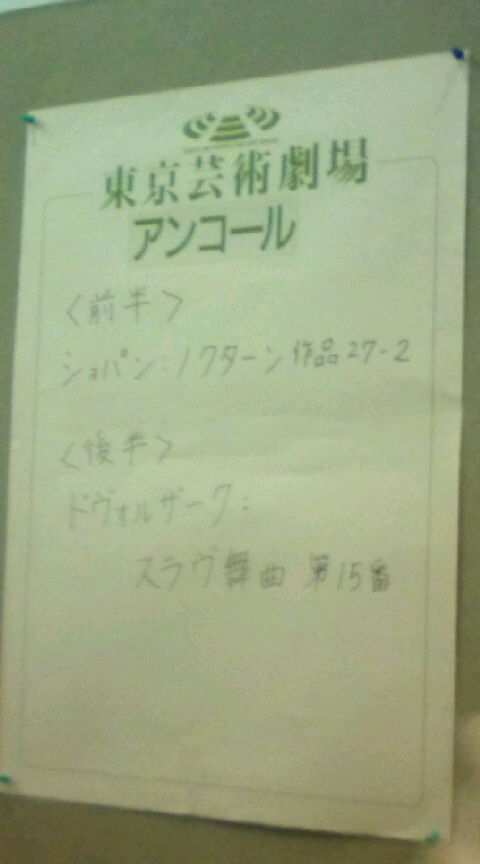 東京芸術劇場
アンコール
〈前半〉
ショパン:ノクターン 作品27-2
〈後半〉
ドヴォルザーク:
スラヴ舞曲 第15番